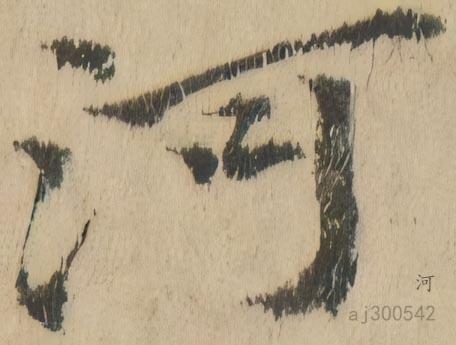 河
河
aj300542